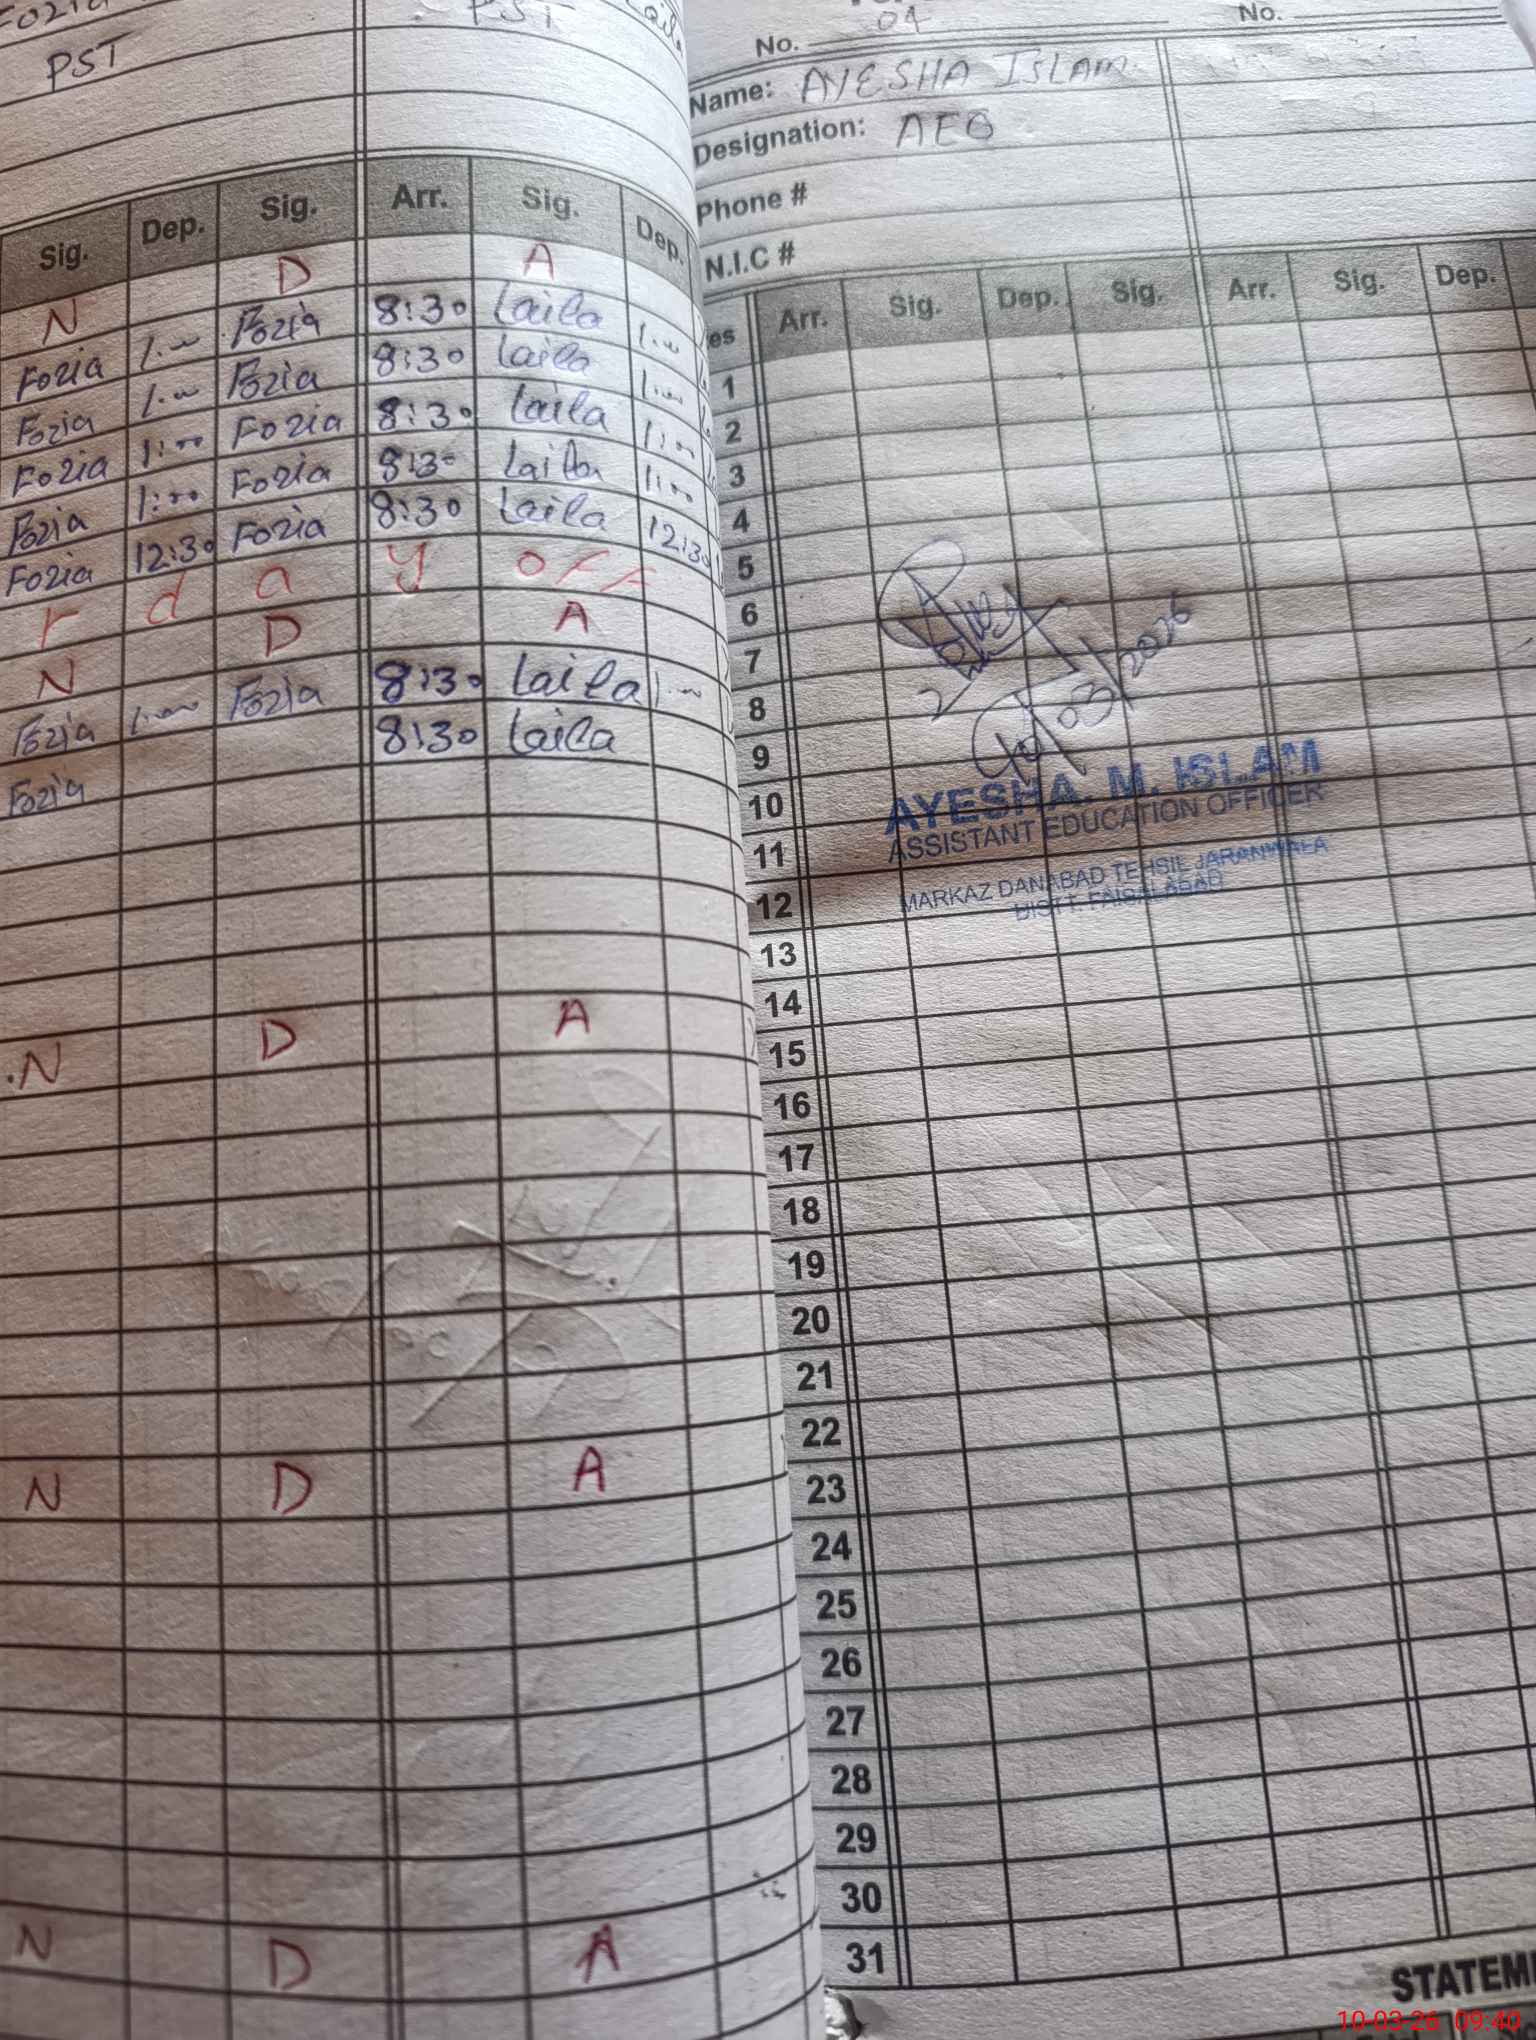 Fozia
PST
PST
Laila
Sig. Dep. Sig. Arr. Sig. Dep.
N D A
Fozia 1:00 Fozia 8:30 Laila 1:00
Fozia 1:00 Fozia 8:30 Laila 1:00
Fozia 1:00 Fozia 8:30 Laila 1:00
Fozia 1:00 Fozia 8:30 Laila 1:00
Fozia 12:30 Fozia 8:30 Laila 12:30
r d a y off
N D A
Fozia 1:00 Fozia 8:30 Laila 1:00
Fozia 8:30 Laila
N D A
N D A
N D A
No. 04 No.
Name: AYESHA ISLAM.
Designation: AEO
Phone #
N.I.C #
es Arr. Sig. Dep. Sig. Arr. Sig. Dep.
1
2
3
4
5
6
7
8
9
10
11
12
13
14
15
16
17
18
19
20
21
22
23
24
25
26
27
28
29
30
31
03/2026
AYESHA. M. ISLAM
ASSISTANT EDUCATION OFFICER
MARKAZ DANABAD TEHSIL JARANWALA
DISTT. FAISALABAD
STATEM
10-03-26 09:40